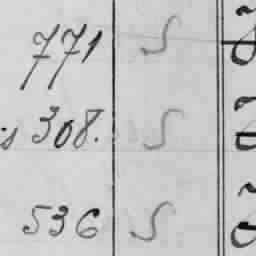 771 S
308. S
536 S